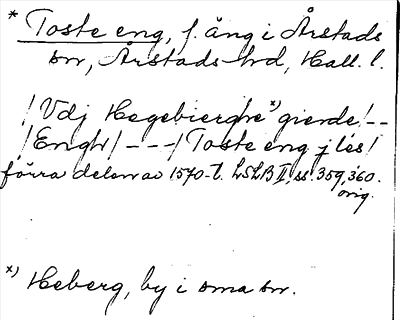 * Toste eng, f. äng i Årstads
sn, Årstads hd, Hall. l.
/Vdj Hegebierghe x) gierde/--
/Engh/---/Toste eng j lés/
förra delen av 1570-t. LSLB II, ss. 359, 360.
orig.
x) Heberg, by i sma sn.